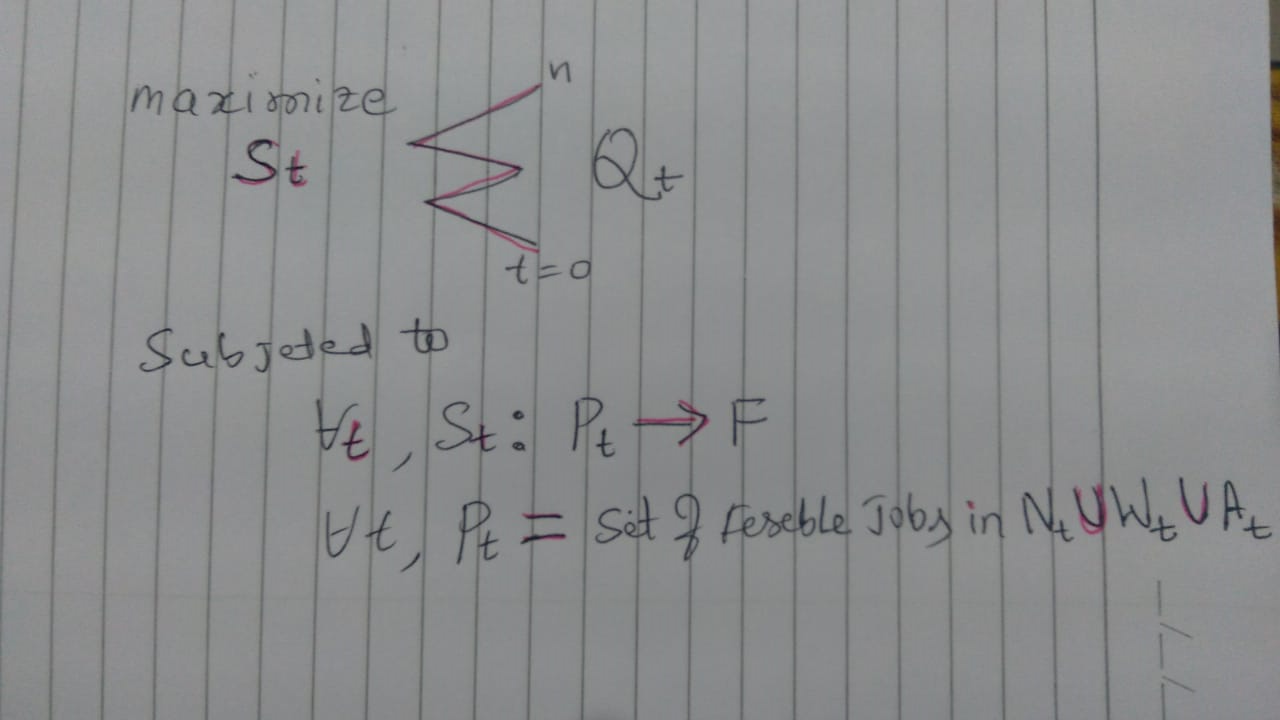 maximize
S_t ∑ n t=0 Q_t
Subjeted to
∀t, S_t : P_t → F
∀t, P_t = set of feseble Jobs in N_t ∪ W_t ∪ A_t